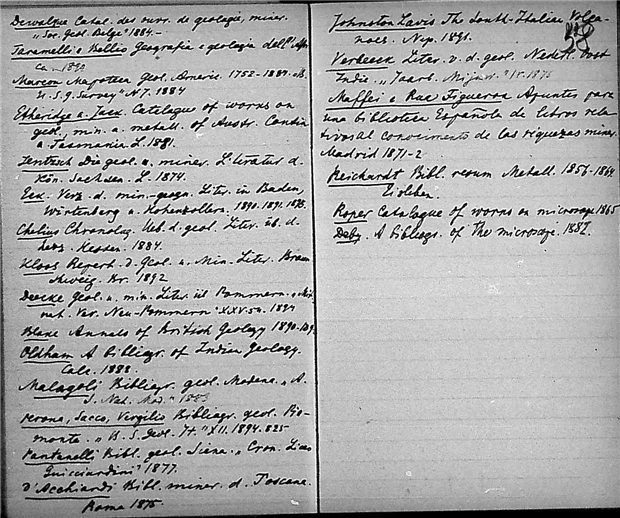 Dewalque Catal. des ouvr. de geologie, miner.
"Soc. Geol. Belge" 1884.—
Taramelli e Bellio Geografia e geologia dell' Afri
ca. 1890
Marcou Mapoteca Geol. Americ. 1752-1881. "B.
U. S. G. Survey" N7. 1884
Etheridge a. Jack. Catalogue of works on
geol., min. a. metall. of Austr. Contin
a. Tasmania L. 1881.
Jentzsch Die geol. u. miner. Literatur d.
Kön. Sachsen. L. 1874.
Eck. Verz. d. min.-geogn. Liter. in Baden,
Würtenberg u. Hohenzollern. 1890. 1891.
Chelius Chronolog. Ueb. d. geol. Liter. üb. d.
Hessen. 1884.
Kloos Repert. d. Geol. u. Min. Liter. Braun
schweig. Br. 1892
Deecke Geol. u. min. Liter. üb Pommern.
nat. Ver. Neu-Pommern" XXV. 54. 1894
Blake Annals of British Geology 1890-
Oldham A bibliogr. of Indian Geology.
Calc. 1888.
Malagoli Bibliogr. geol. Modena. "A.
S. Nat. Mod."
Perona, Sacco, Virgilio Bibliogr. geol. Pie-
monte. "B. S. Geol. It." XII. 1894. 825
Pantanelli Bibl. geol. Siena. "Cron. Liceo
Guicciardini" 1877.
D'Acchiardi Bibl. miner. d. Toscana.
Roma 1875.
Johnston-Lavis The South-Italian Volca-
noes. Nap. 1891.
Verbeeck Liter. v. d. geol. Nederl. Oost
Indie. "Jaarb. Mijnw."
Maffei e Rua Figueroa Apuntes para
una biblioteca Española de libros rela
tivos al conocimento de las riquezas miner.
Madrid 1871-2
Reichardt Bibl. rerum Metall. 1856-1864.
Eisleben.
Roper Catalogue of works on microscope 1865
Deby. A bibliogr. of The microscope. 1882.